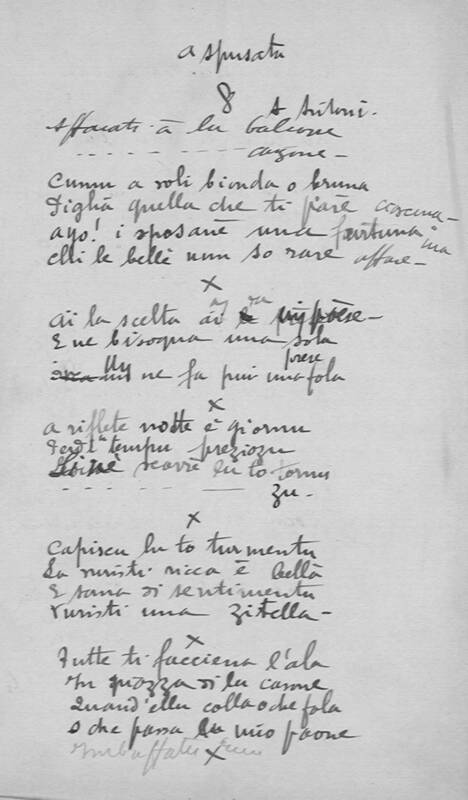 A spusata
8
A Antoni.
Affacati à lu balcone
cagone -
Cumu a voli bionda o bruna
Piglià quella che ti pare
ayo! i sposanè una furtuna
chi le belle nun so rare
X
Ai la scelta ai
E ne bisogna una sola
ne fa pui una fola
X
A riflete notte è giornu
Perdi tempu preziozu
scorre lu to tornu
zu.
X
Capiscu lu to turmentu
La vuristi ricca è bella
E sana di sentimentu
Vuristi una zitella -
X
Tutte ti facciena l'ala
In piazza di lu casone
Quand'ellu colla o che fala
O che passa lu mio paone
X